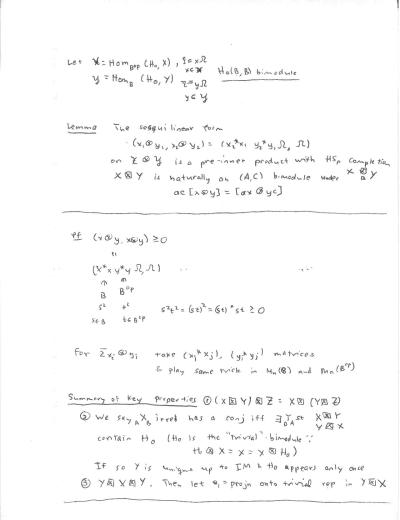 Let 𝒳 = Hom_{B^{op}} (H_0, X) , ξ = xΩ
x ∈ 𝒳
𝒴 = Hom_B (H_0, Y) η = yΩ
y ∈ 𝒴
H_0(B,B) bimodule
Lemma The sesquilinear form
(x_1 ⊗ y_1, x_2 ⊗ y_2) = (x_2* x_1 y_2* y_1 Ω, Ω)
on 𝒳 ⊗ 𝒴 is a pre-inner product with HSp completion X ⊠_B Y
X ⊠ Y is naturally an (A,C) bimodule under
ac [x⊗y] = [ax ⊗ yc]
Pf (x⊗y, x⊗y) ≥ 0
(x* x y* y Ω, Ω)
B B^{op}
s^2 t^2 s^2t^2 = (st)^2 = (st)* st ≥ 0
s ∈ B t ∈ B^{op}
For Σ x_i ⊗ y_i take (x_i* x_j), (y_i* y_j) matrices
& play same trick in M_n(B) and M_n(B^{op})
Summary of key properties ① (X ⊠ Y) ⊠ Z = X ⊠ (Y ⊠ Z)
② We say _A X_B irred has a conj iff ∃ Y st X ⊠ Y
Y ⊠ X
contain H_0 (H_0 is the "trivial" bimodule ∵
H_0 ⊠ X = X = X ⊠ H_0)
If so Y is unique up to IM & H_0 appears only once
③ Y ⊠ X ⊠ Y. Then let e_1 = projn onto trivial rep in Y ⊠ X